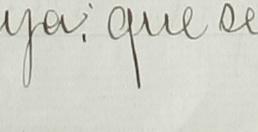 ya; que se